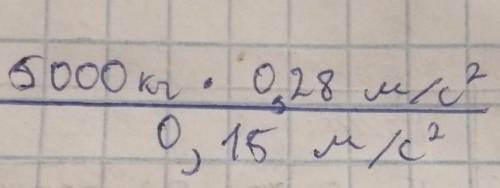 5000кг · 0,28 м/с²
0,15 м/с²